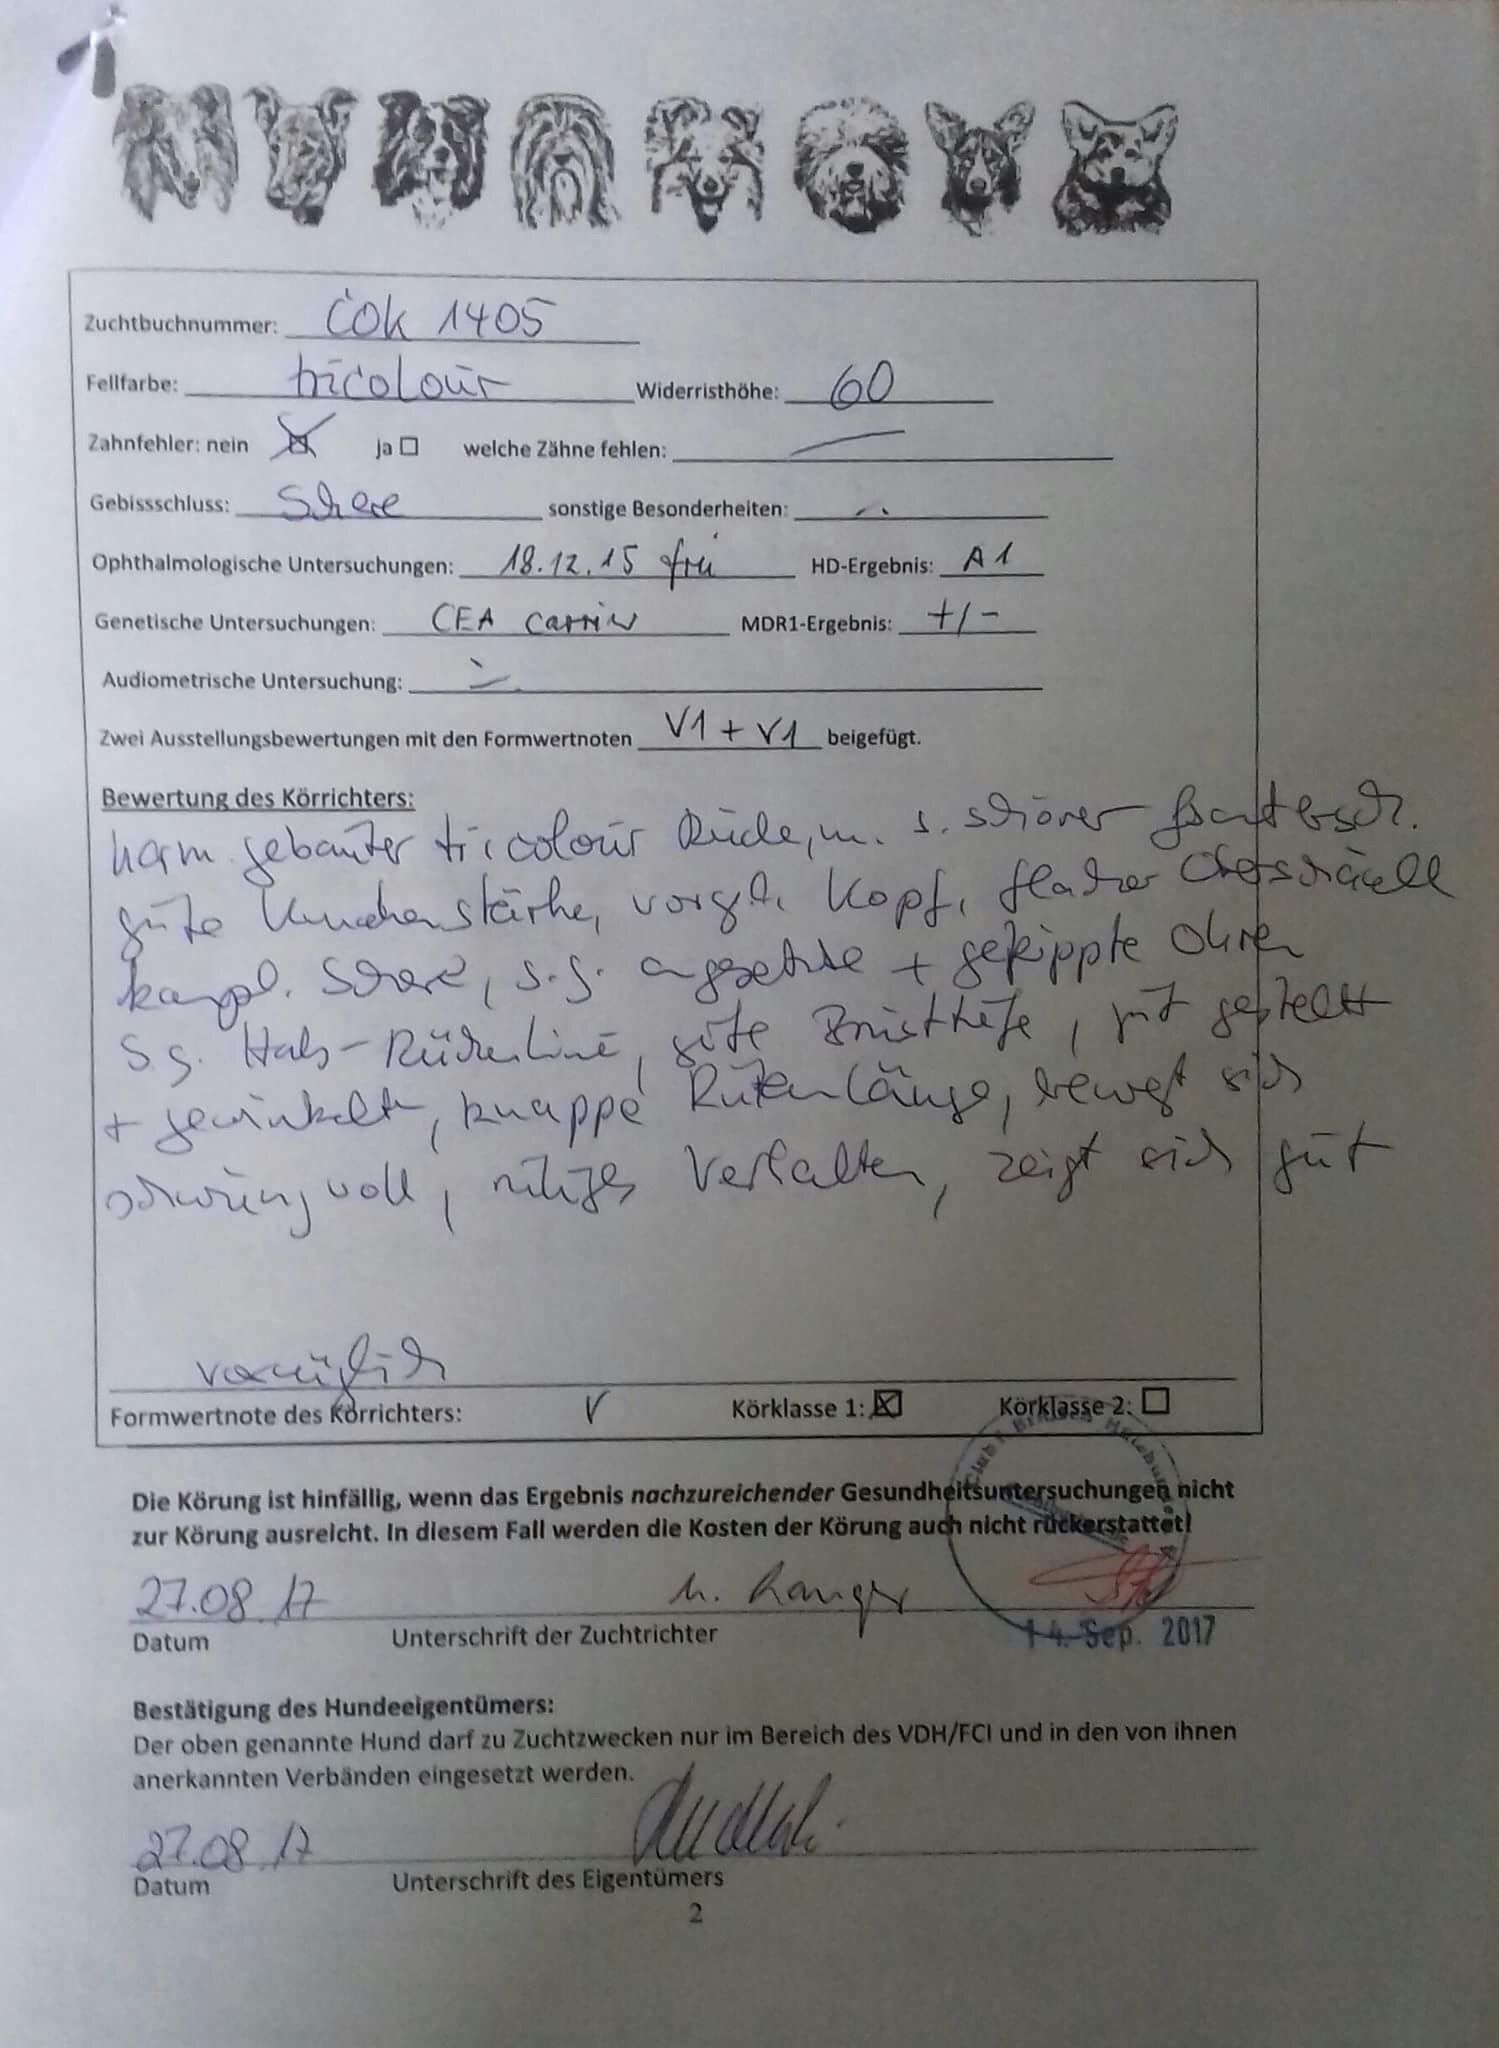 Zuchtbuchnummer: ČOK 1405
Fellfarbe: tricolour Widerristhöhe: 60
Zahnfehler: nein ☒ ja ☐ welche Zähne fehlen: —
Gebissschluss: Schere sonstige Besonderheiten:
Ophthalmologische Untersuchungen: 18.12.15 frei HD-Ergebnis: A1
Genetische Untersuchungen: CEA carrier MDR1-Ergebnis: +/-
Audiometrische Untersuchung:
Zwei Ausstellungsbewertungen mit den Formwertnoten V1 + V1 beigefügt.
Bewertung des Körrichters:
harm. gebauter tricolour Rüde, m. s. schöner
gute Knochenstärke, vorzgl. Kopf, flacher Oberschädel
kompl. Schere, s.g. angesetzte + gekippte Ohren
s.g. Hals-Rückenlinie, gute Brusttiefe, gut gestellt
+ gewinkelt, knappe Rutenlänge, bewegt sich
schwungvoll, ruhiges Verhalten, zeigt sich gut
vorzüglich
Formwertnote des Körrichters: V Körklasse 1: ☒ Körklasse 2: ☐
Die Körung ist hinfällig, wenn das Ergebnis nachzureichender Gesundheitsuntersuchungen nicht
zur Körung ausreicht. In diesem Fall werden die Kosten der Körung auch nicht rückerstattet!
27.08.17
Datum Unterschrift der Zuchtrichter
14. Sep. 2017
Bestätigung des Hundeeigentümers:
Der oben genannte Hund darf zu Zuchtzwecken nur im Bereich des VDH/FCI und in den von ihnen
anerkannten Verbänden eingesetzt werden.
27.08.17
Datum Unterschrift des Eigentümers
2